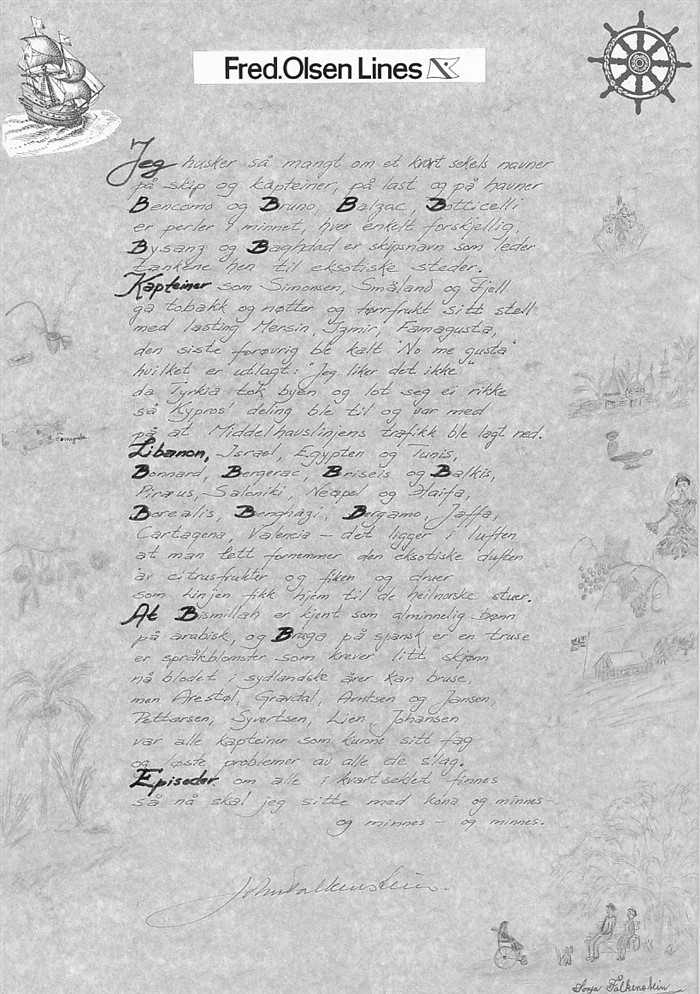 Fred.Olsen Lines
Jeg husker så mangt om et kvart sekels navner
på skip og kapteiner, på last og på havner
Bencomo og Bruno, Balzac, Botticelli
er perler i minnet, hver enkelt forskjellig.
Bysanz og Baghdad er skipsnavn som leder
tankene hen til eksotiske steder.
Kapteiner som Simonsen, Småland og Fjell
ga tobakk og nøtter og tørrfrukt sitt stell
med lasting Mersin, Izmir, Famagusta,
den siste forøvrig ble kalt "No me gusta"
hvilket er utlagt: "Jeg liker det ikke"
da Tyrkia tok byen og lot seg ei rikke
så Kypros' deling ble til og var med
på at Middelhavslinjens trafikk ble lagt ned.
Libanon, Israel, Egypten og Tunis,
Bonnard, Bergerac, Briseis og Balkis,
Piræus, Saloniki, Neapel og Haifa,
Borealis, Benghazi, Bergamo, Jaffa,
Cartagena, Valencia – det ligger i luften
at man lett fornemmer den eksotiske duften
av citrusfrukter og fiken og druer
som Linjen fikk hjem til de heilnorske stuer.
At Bismillah er kjent som alminnelig bønn
på arabisk, og Braga på spansk er en truse
er språkblomster som krever litt skjønn
nå blodet i sydlandske årer kan bruse,
men Arestøl, Gravdal, Arntsen og Jansen,
Pettersen, Syvertsen, Lien, Johansen
var alle kapteiner som kunne sitt fag
og løste problemer av alle de slag.
Episoder om alle i kvartseklet finnes
så nå skal jeg sitte med kona og minnes –
og minnes – og minnes.
Famagusta
John Falkenstein.
Sonja Falkenstein